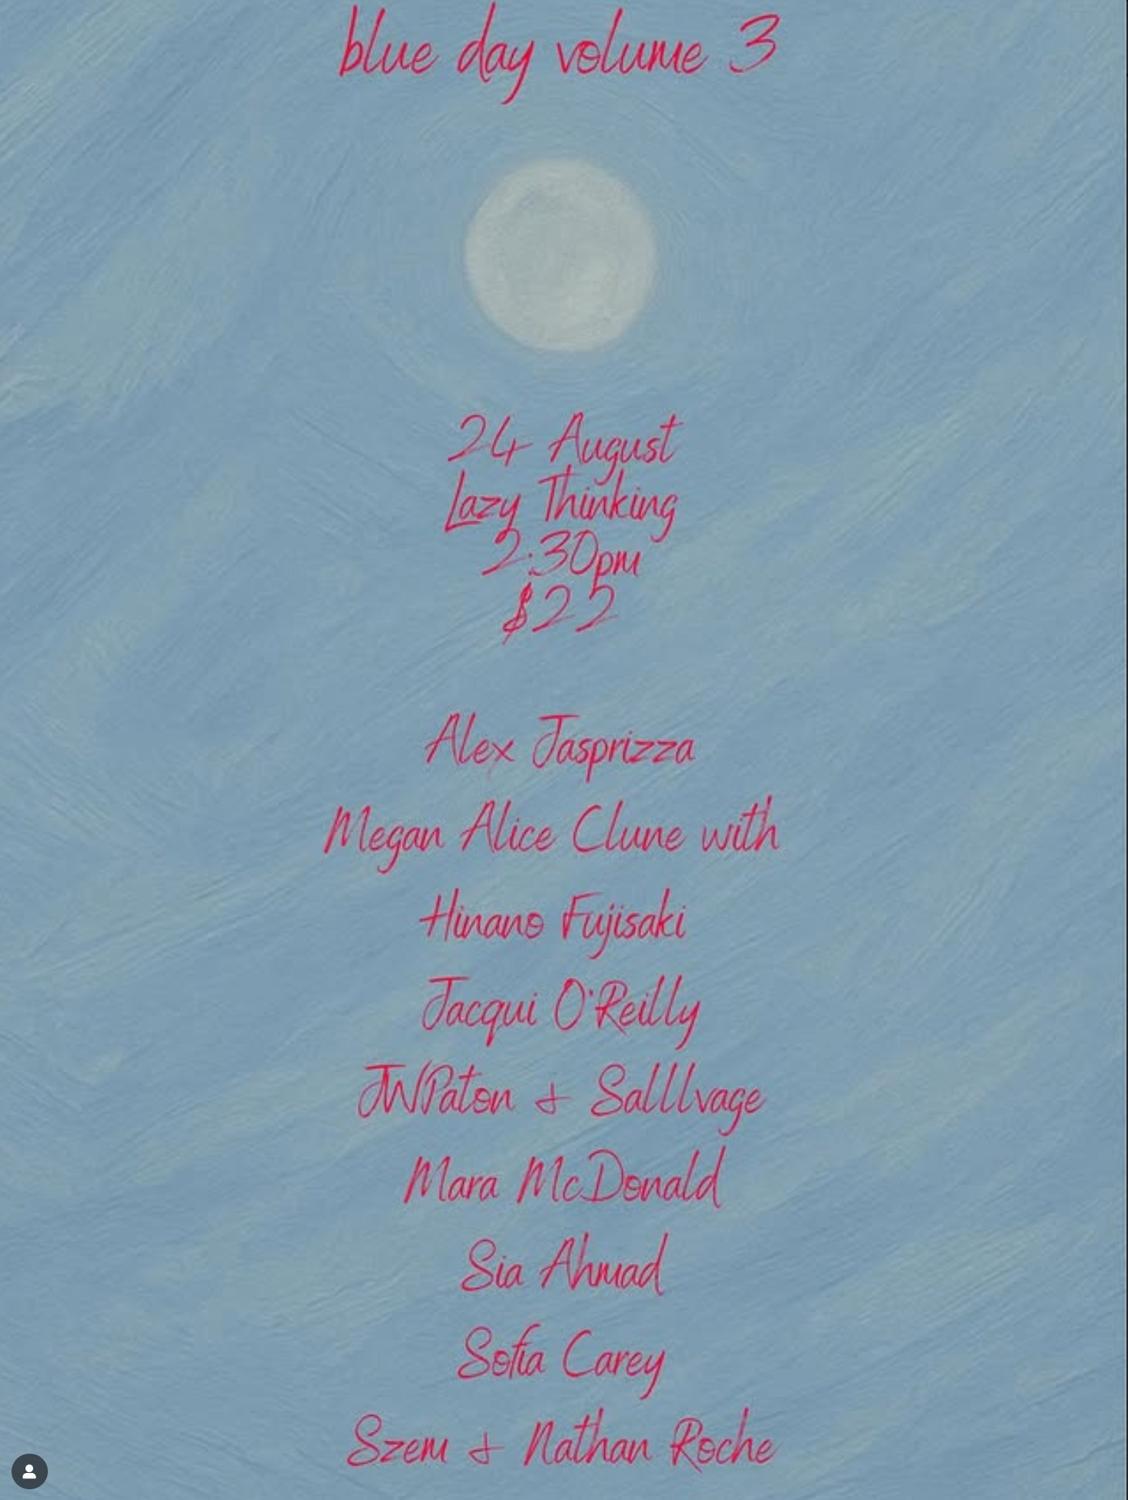 blue day volume 3
24 August
Lazy Thinking
2:30pm
$22
Alex Jasprizza
Megan Alice Clune with
Hinano Fujisaki
Jacqui O'Reilly
JWPaton & Salllvage
Mara McDonald
Sia Ahmad
Sofia Carey
Szem & Nathan Roche